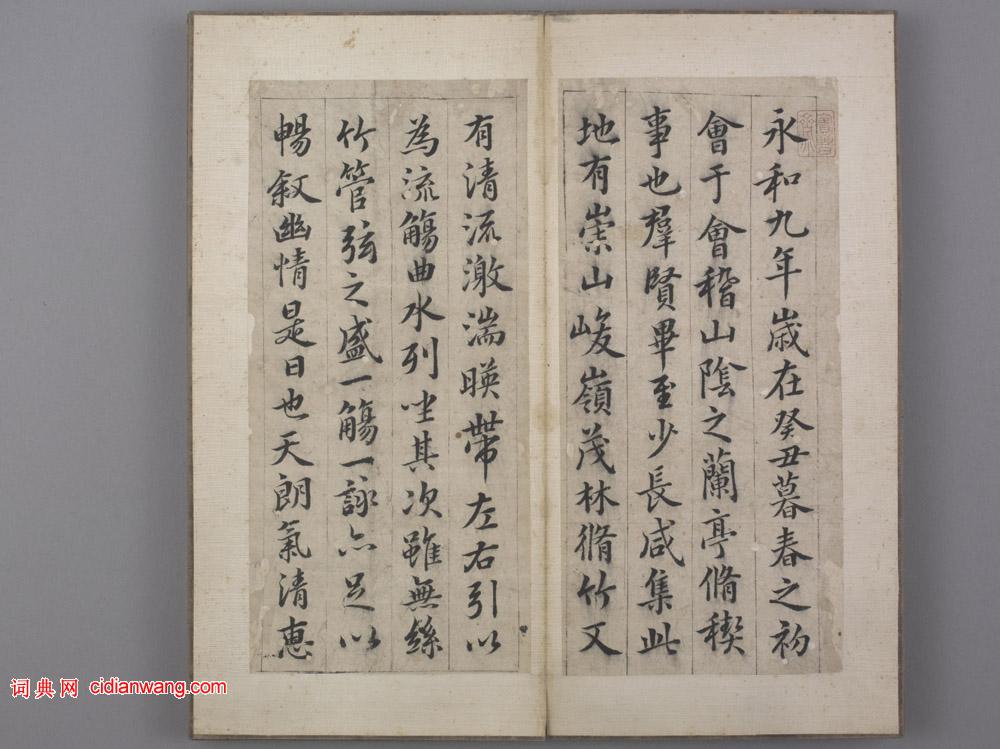 永和九年歲在癸丑暮春之初
會于會稽山陰之蘭亭脩稧
事也羣賢畢至少長咸集此
地有崇山峻嶺茂林脩竹又
有清流激湍暎帶左右引以
為流觴曲水列坐其次雖無絲
竹管弦之盛一觴一詠亦足以
暢敘幽情是日也天朗氣清惠
词典网 cidianwang.com